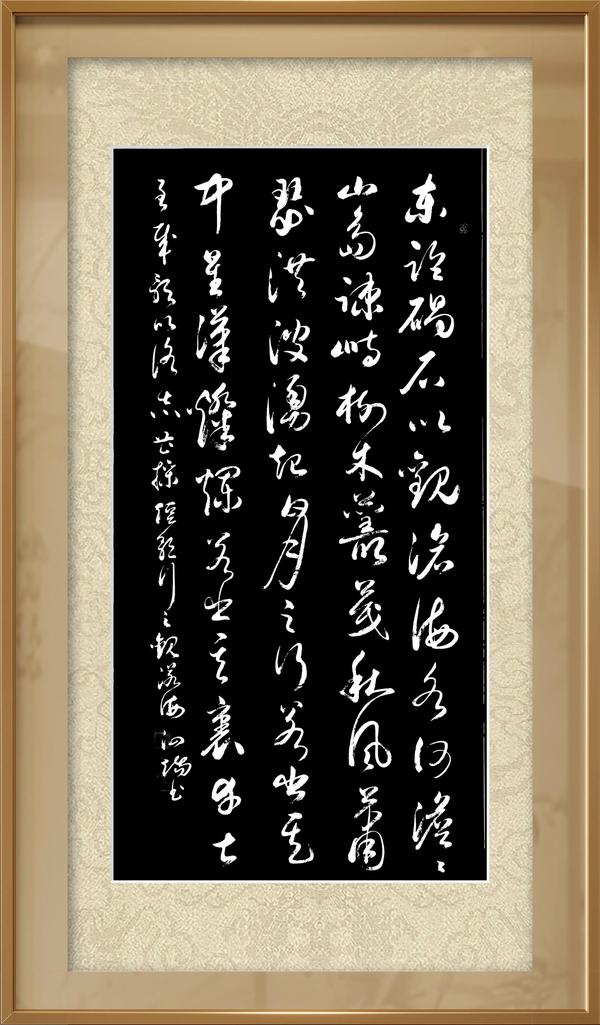 東臨碣石以觀滄海水何澹〻
山島竦峙樹木叢茂秋風蕭
瑟洪波湧起日月之行若出其
中星漢燦爛若出其裏幸甚
至哉歌以詠志操短歌行之觀滄海书